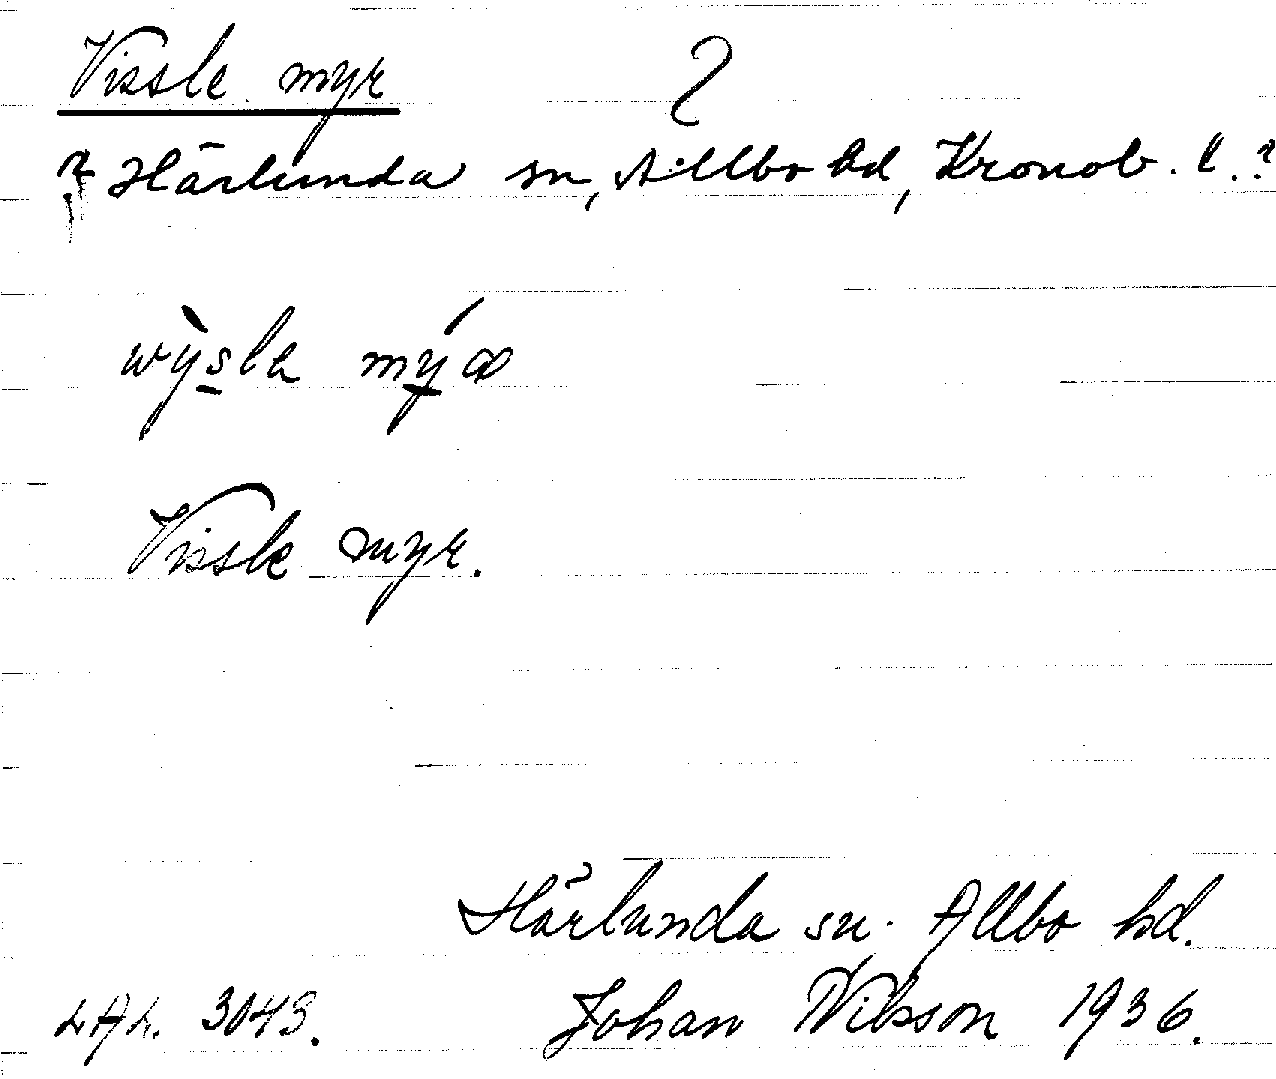 Vissle myr ?
? Härlunda sn, Allbo hd, Kronob. l. ?
wỳsla mýr
Vissle myr.
Härlunda sn. Allbo hd.
LAL. 3043. Johan Nilsson 1936.